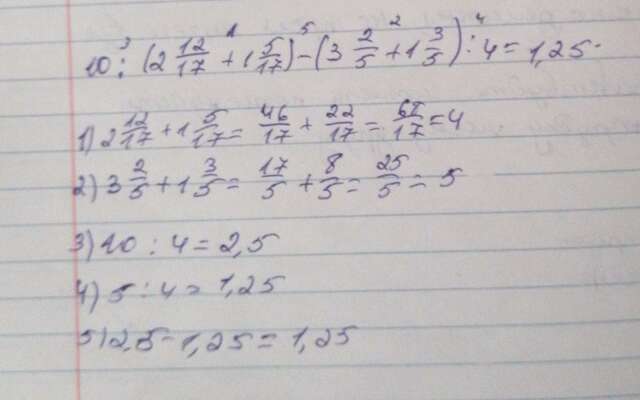 10 : (2 12/17 + 1 5/17) - (3 2/5 + 1 3/5) : 4 = 1,25.
1) 2 12/17 + 1 5/17 = 46/17 + 22/17 = 68/17 = 4
2) 3 2/5 + 1 3/5 = 17/5 + 8/5 = 25/5 = 5
3) 10 : 4 = 2,5
4) 5 : 4 = 1,25
5) 2,5 - 1,25 = 1,25